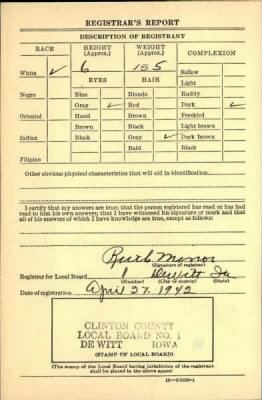 REGISTRAR'S REPORT
DESCRIPTION OF REGISTRANT
RACE HEIGHT (Approx.) WEIGHT (Approx.) COMPLEXION
White ✓ 6 155 Sallow
EYES HAIR Light
Negro Blue Blonde Ruddy
Gray ✓ Red Dark ✓
Oriental Hazel Brown Freckled
Brown Black Light brown
Indian Black Gray ✓ Dark brown
Bald Black
Filipino
Other obvious physical characteristics that will aid in identification
I certify that my answers are true; that the person registered has read or has had
read to him his own answers; that I have witnessed his signature or mark and that
all of his answers of which I have knowledge are true, except as follows:
Ruth
(Signature of registrar)
Registrar for Local Board 1 Dewitt Ia
(Number) (City or county) (State)
Date of registration April 27. 1942
CLINTON COUNTY
LOCAL BOARD NO. 1
DE WITT IOWA
(STAMP OF LOCAL BOARD)
(The stamp of the Local Board having jurisdiction of the registrant
shall be placed in the above space)